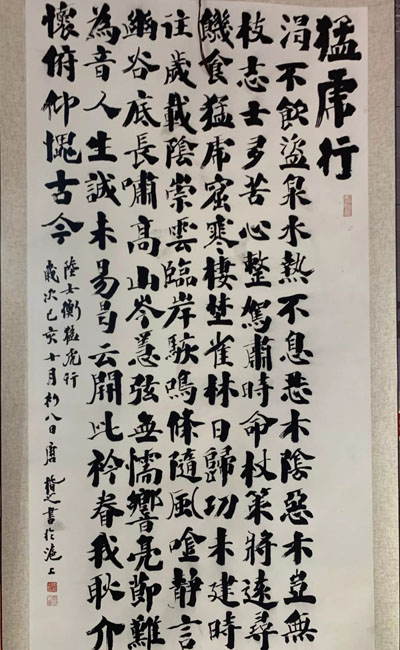 猛虎行
渴不飲盜泉水熱不息惡木陰惡木豈無
枝志士多苦心整駕肅時命杖策將遠尋
饑食猛虎窟寒棲埜雀林日歸功未建時
往歲載陰崇雲臨岸駭鳴條隨風唫靜言
幽谷底長嘯高山岑急弦無懦響亮節難
為音人生誠未易曷云開此衿眷我耿介
懷俯仰愧古今
陸士衡猛虎行
歲次己亥十月初八日唐書於滬上